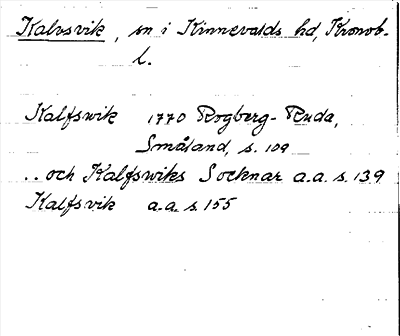 Kalvsvik, sn i Kinnevalds hd, Kronob.
l.
Kalfswik 1770 Rogberg-Ruda,
Småland, s. 109
.. och Kalfswiks Socknar a.a. s. 139
Kalfsvik a.a. s. 155